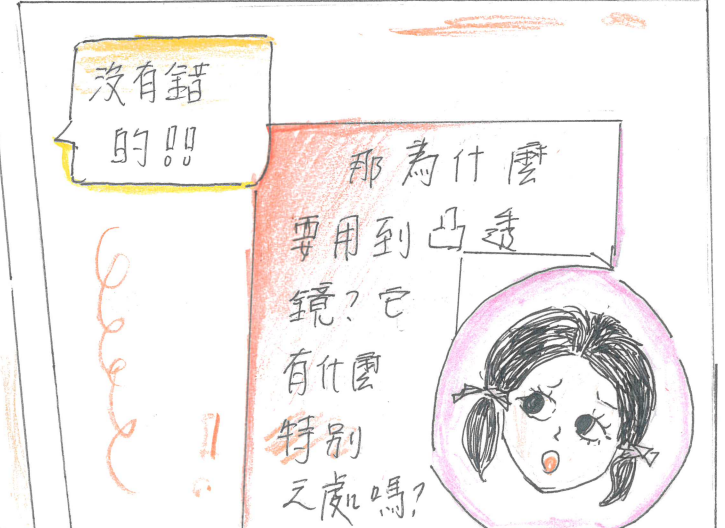 沒有錯
的!!
那為什麼
要用到凸透
鏡?它
有什麼
特別
之處嗎?